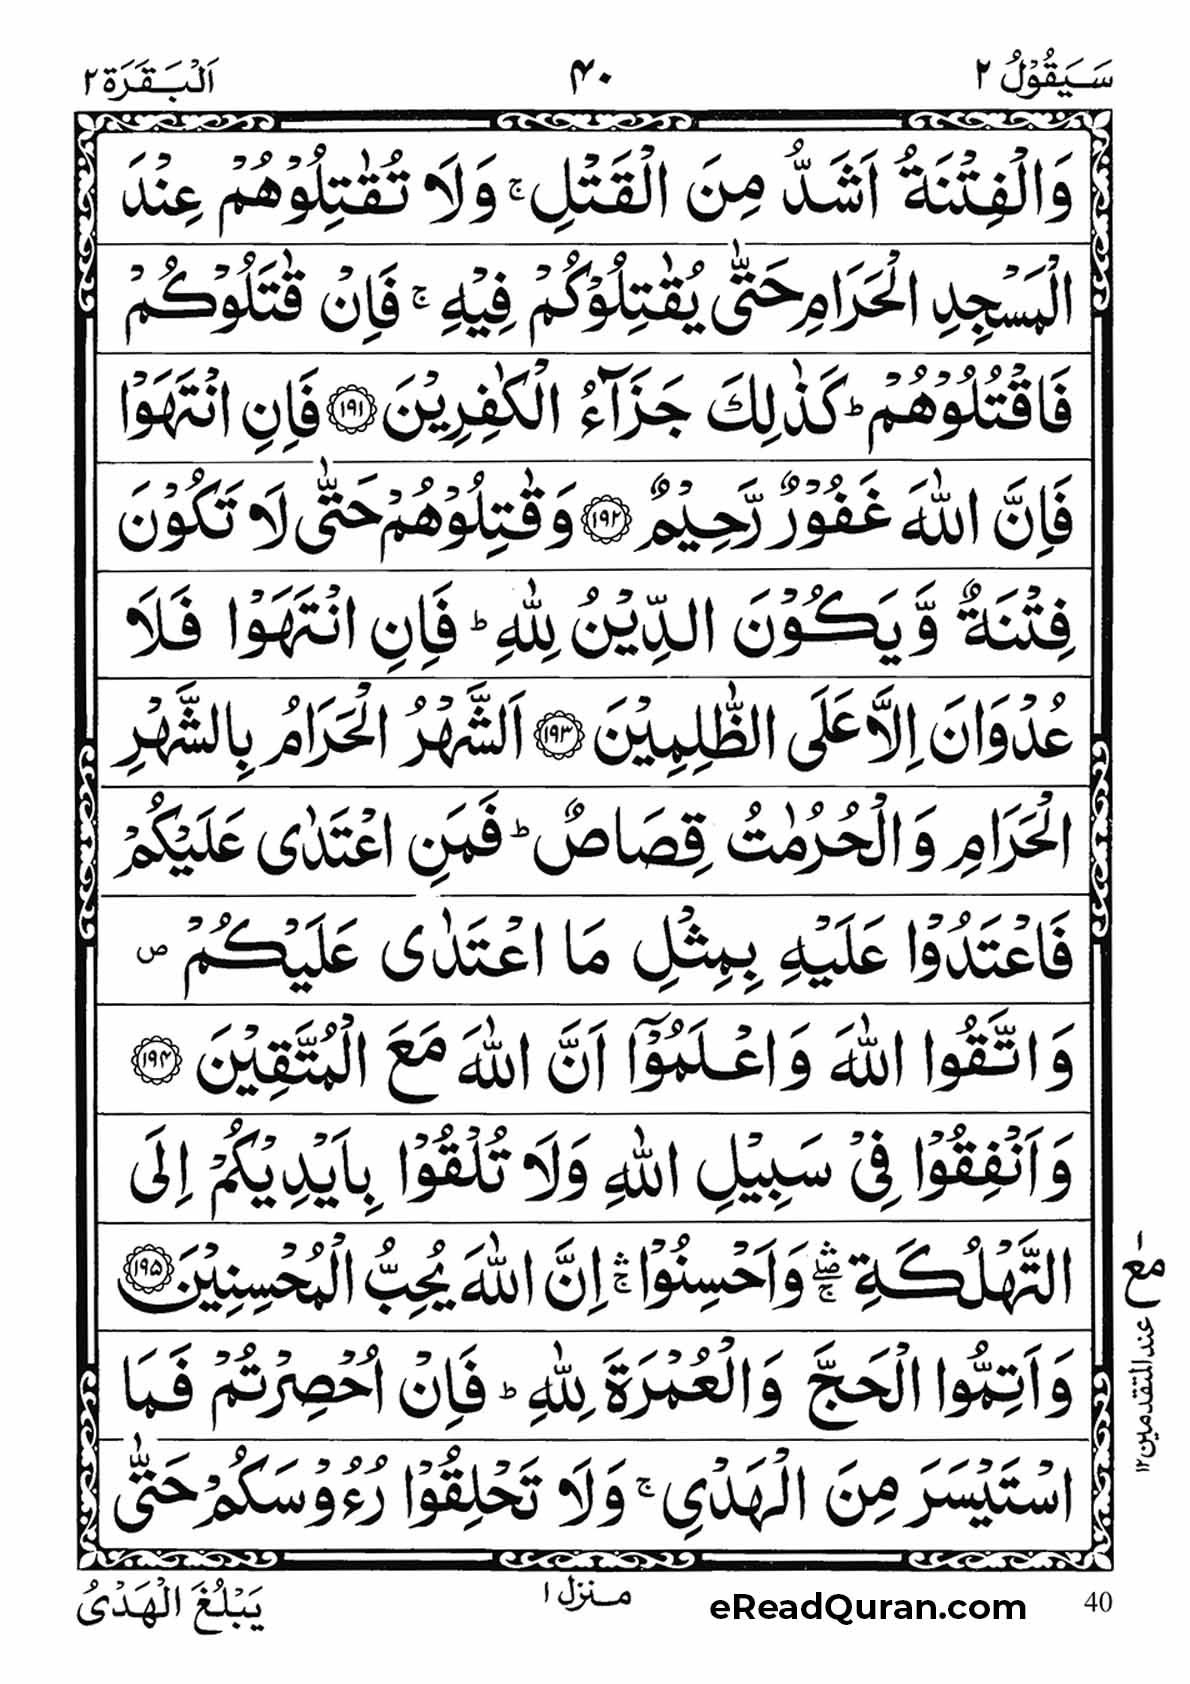 سَیَقُوْلُ ۲ ۴۰ اَلْبَقَرَة ۲
وَالْفِتْنَةُ اَشَدُّ مِنَ الْقَتْلِ ۚ وَلَا تُقٰتِلُوْهُمْ عِنْدَ
الْمَسْجِدِ الْحَرَامِ حَتّٰی یُقٰتِلُوْكُمْ فِیْهِ ۚ فَاِنْ قٰتَلُوْكُمْ
فَاقْتُلُوْهُمْ ؕ كَذٰلِكَ جَزَآءُ الْكٰفِرِیْنَ ﴿۱۹۱﴾ فَاِنِ انْتَهَوْا
فَاِنَّ اللّٰهَ غَفُوْرٌ رَّحِیْمٌ ﴿۱۹۲﴾ وَقٰتِلُوْهُمْ حَتّٰی لَا تَكُوْنَ
فِتْنَةٌ وَّیَكُوْنَ الدِّیْنُ لِلّٰهِ ؕ فَاِنِ انْتَهَوْا فَلَا
عُدْوَانَ اِلَّا عَلَی الظّٰلِمِیْنَ ﴿۱۹۳﴾ اَلشَّهْرُ الْحَرَامُ بِالشَّهْرِ
الْحَرَامِ وَالْحُرُمٰتُ قِصَاصٌ ؕ فَمَنِ اعْتَدٰی عَلَیْكُمْ
فَاعْتَدُوْا عَلَیْهِ بِمِثْلِ مَا اعْتَدٰی عَلَیْكُمْ ص
وَاتَّقُوا اللّٰهَ وَاعْلَمُوْۤا اَنَّ اللّٰهَ مَعَ الْمُتَّقِیْنَ ﴿۱۹۴﴾
وَاَنْفِقُوْا فِیْ سَبِیْلِ اللّٰهِ وَلَا تُلْقُوْا بِاَیْدِیْكُمْ اِلَی
التَّهْلُكَةِ ۛۖۚ وَاَحْسِنُوْا ۛۚ اِنَّ اللّٰهَ یُحِبُّ الْمُحْسِنِیْنَ ﴿۱۹۵﴾
وَاَتِمُّوا الْحَجَّ وَالْعُمْرَةَ لِلّٰهِ ؕ فَاِنْ اُحْصِرْتُمْ فَمَا
اسْتَیْسَرَ مِنَ الْهَدْیِ ۚ وَلَا تَحْلِقُوْا رُءُوْسَكُمْ حَتّٰی
مع
عند المتقدمین ۱۲
یَبْلُغَ الْهَدْیُ منزل ۱ eReadQuran.com 40